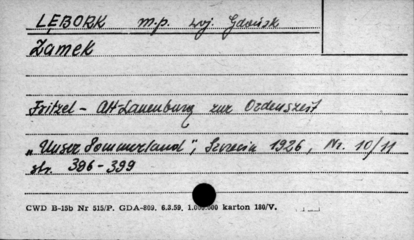 LĘBORK m.p. woj. Gdańsk
Zamek
Fritzel - Alt-Lauenburg zur Ordenszeit
„Unser Pommerland", Szczecin 1926, Nr. 10/11
str. 396-399
CWD B-15b Nr 515/P. GDA-809. 6.3.59. 1.000.000 karton 180/V.